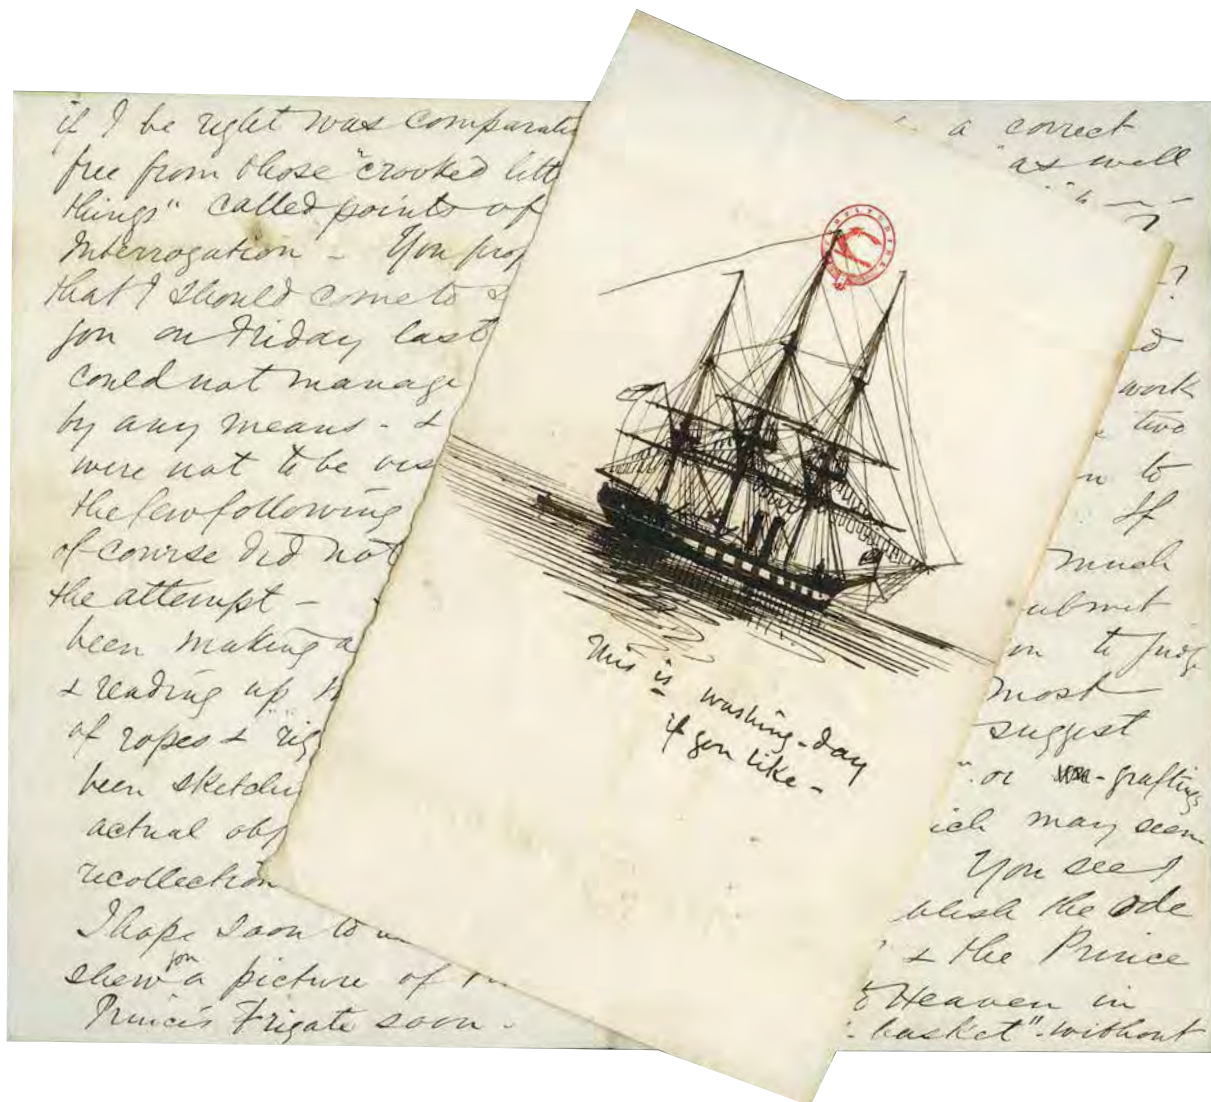 if I be right was comparati
free from those "crooked litt
things" called points of
Interrogation - You prop
that I should come to s
you on Friday last
could not manage
by any means - &
were not to be vis
the few following
of course did not
the attempt -
been making a
& reading up
of ropes & "rig
been sketchi
actual obj
recollection
I hope soon to
shew you a picture of
Prince's Frigate soon -
This is washing-day
if you like -
a correct
as well
?
work
two
n to
If
much
ubmit
to judg
most
suggest
or -graftings
ich may seem
You see I
blish the Ode
& the Prince
Heaven in
basket" - without